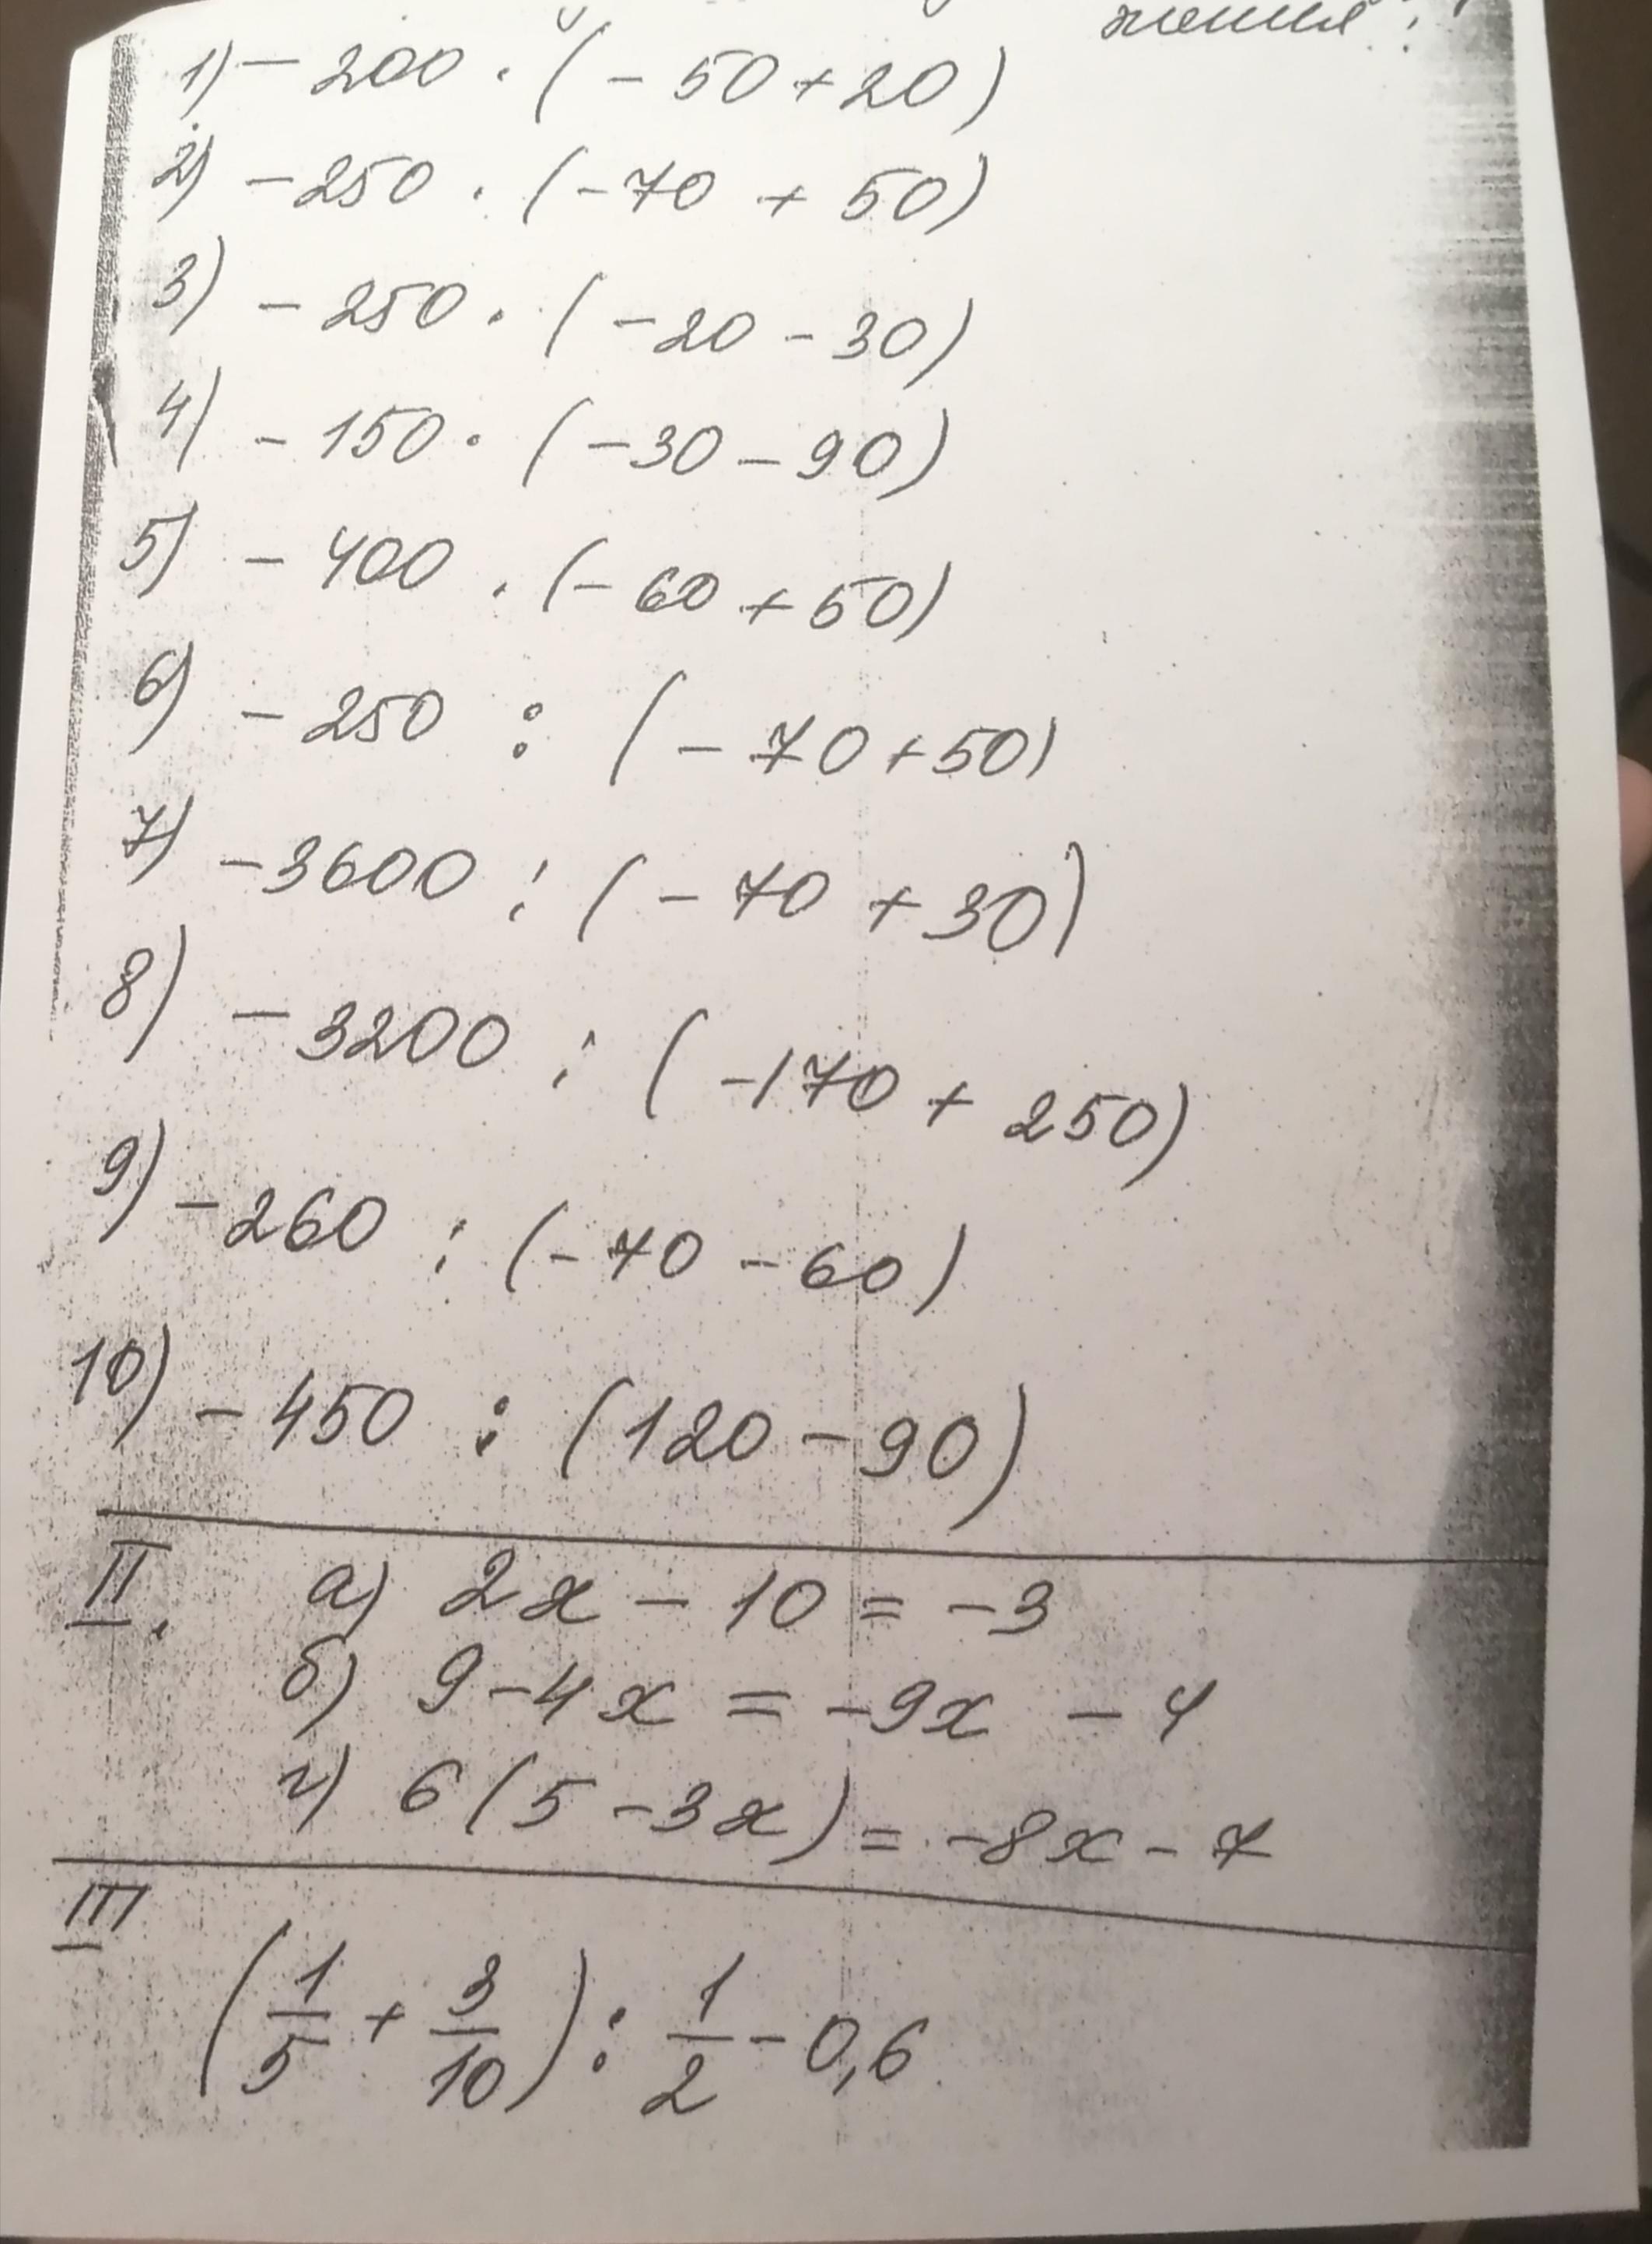 жения:
1) – 200 · (– 50 + 20)
2) – 250 · (–70 + 50)
3) – 250 · (–20 – 30)
4) – 150 · (–30 – 90)
5) – 400 · (– 60 + 50)
6) – 250 : (– 70 + 50)
7) –3600 : (– 70 + 30)
8) – 3200 : (–170 + 250)
9) –260 : (–70 – 60)
10) – 450 : (120 – 90)
II. а) 2x – 10 = –3
б) 9 – 4x = –9x – 4
г) 6(5 – 3x) = –8x – 7
III
(1/5 + 3/10) : 1/2 – 0,6